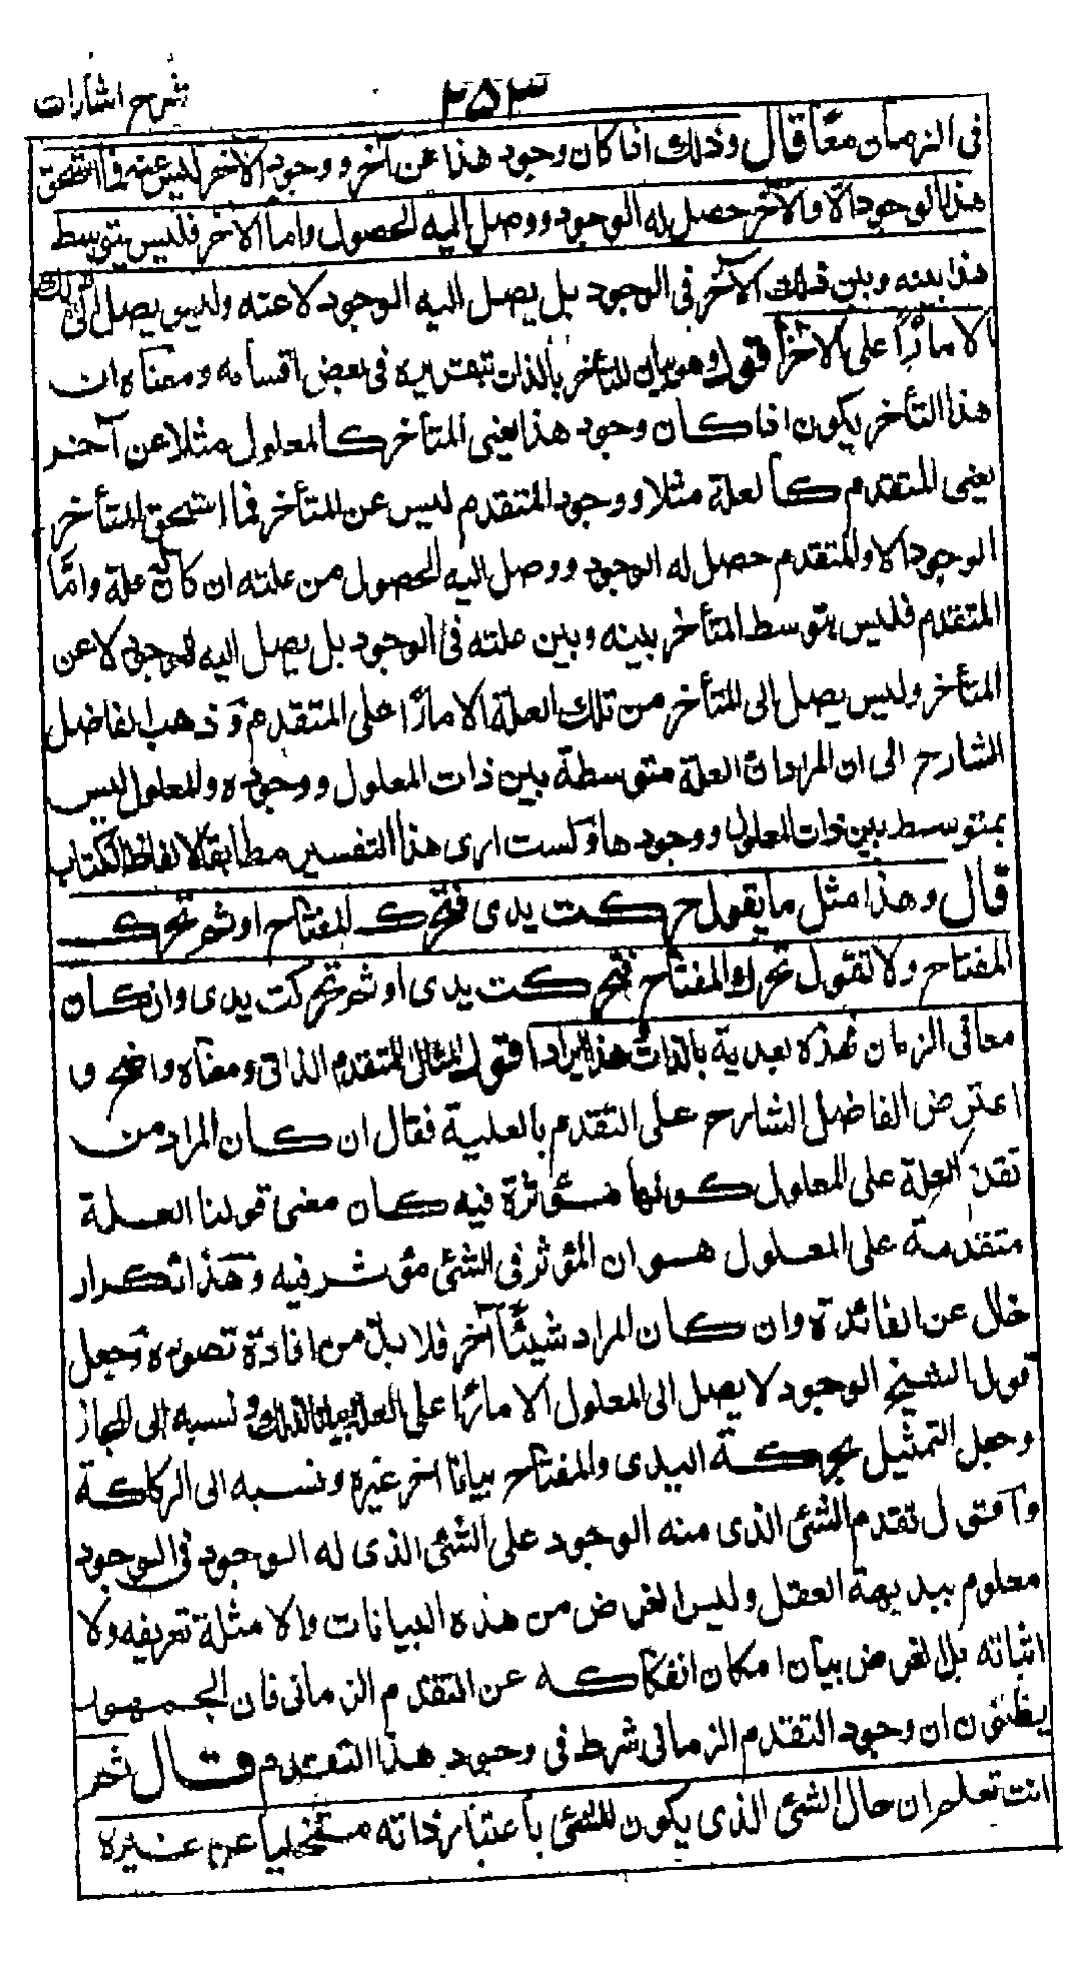 شرح اشارات
٢٥٣
فى الزمان معًا قال وذلك اذا كان وجود هذا عن آخر ووجود الآخر ليس عنه فما استحق
هذا الوجود الا والآخر حصل له الوجود ووصل اليه الحصول واما الآخر فليس يتوسط
هذا بينه وبين ذلك الآخر فى الوجود بل يصل اليه الوجود لا عنه وليس يصل الى ذلك
الا مارًا على الآخر اقول وهو بيان للتأخر بالذات بتقريره فى بعض اقسامه ومعناه ان
هذا التأخر يكون اذا كان وجود هذا يعنى المتأخر كالمعلول مثلا عن آخر
يعنى المتقدم كالعلة مثلا ووجود المتقدم ليس عن المتأخر فما استحق المتأخر
الوجود الا والمتقدم حصل له الوجود ووصل اليه الحصول من علته ان كانت علة وامّا
المتقدم فليس يتوسط المتأخر بينه وبين علته فى الوجود بل يصل اليه الوجود لا عن
المتأخر وليس يصل الى المتأخر من تلك العلة الا مارًا على المتقدم وذهب الفاضل
الشارح الى ان المراد ان العلة متوسطة بين ذات المعلول ووجوده والمعلول ليس
بمتوسط بين ذات المعلول ووجودها ولست ارى هذا التفسير مطابقا لالفاظ الكتاب
قال وهذا مثل ما يقول حركت يدى فتحرك المفتاح او ثم تحرك
المفتاح ولا تقول تحرك المفتاح فتحركت يدى او ثم تحركت يدى وان كان
معا فى الزمان فهذه بعدية بالذات اقول هذا ايراد المثال للمتقدم الذاتى ومعناه واضح و
اعترض الفاضل الشارح على التقدم بالعلية فقال ان كان المراد من
تقدم العلة على المعلول كونها مؤثرة فيه كان معنى قولنا العلة
متقدمة على المعلول هو ان المؤثر فى الشئ مؤثر فيه وهذا تكرار
خال عن الفائدة وان كان المراد شيئًا آخر فلا بد من افادة تصوره وجعل
قول الشيخ الوجود لا يصل الى المعلول الا مارًا على العلة بيانا لذلك ونسبه الى المجاز
وجعل التمثيل بحركة اليدى والمفتاح بيانا اخر غيره ونسبه الى الركاكة
واقول تقدم الشئ الذى منه الوجود على الشئ الذى له الوجود فى الوجود
معلوم ببديهة العقل وليس الغرض من هذه البيانات والامثلة تعريفه ولا
اثباته بل الغرض بيان امكان انفكاكه عن التقدم الزمانى فان الجمهور
يظنون ان وجود التقدم الزمانى شرط فى وجود هذا التقدم قال ثم
انت تعلم ان حال الشئ الذى يكون للشئ باعتبار ذاته متخليا عن غيره